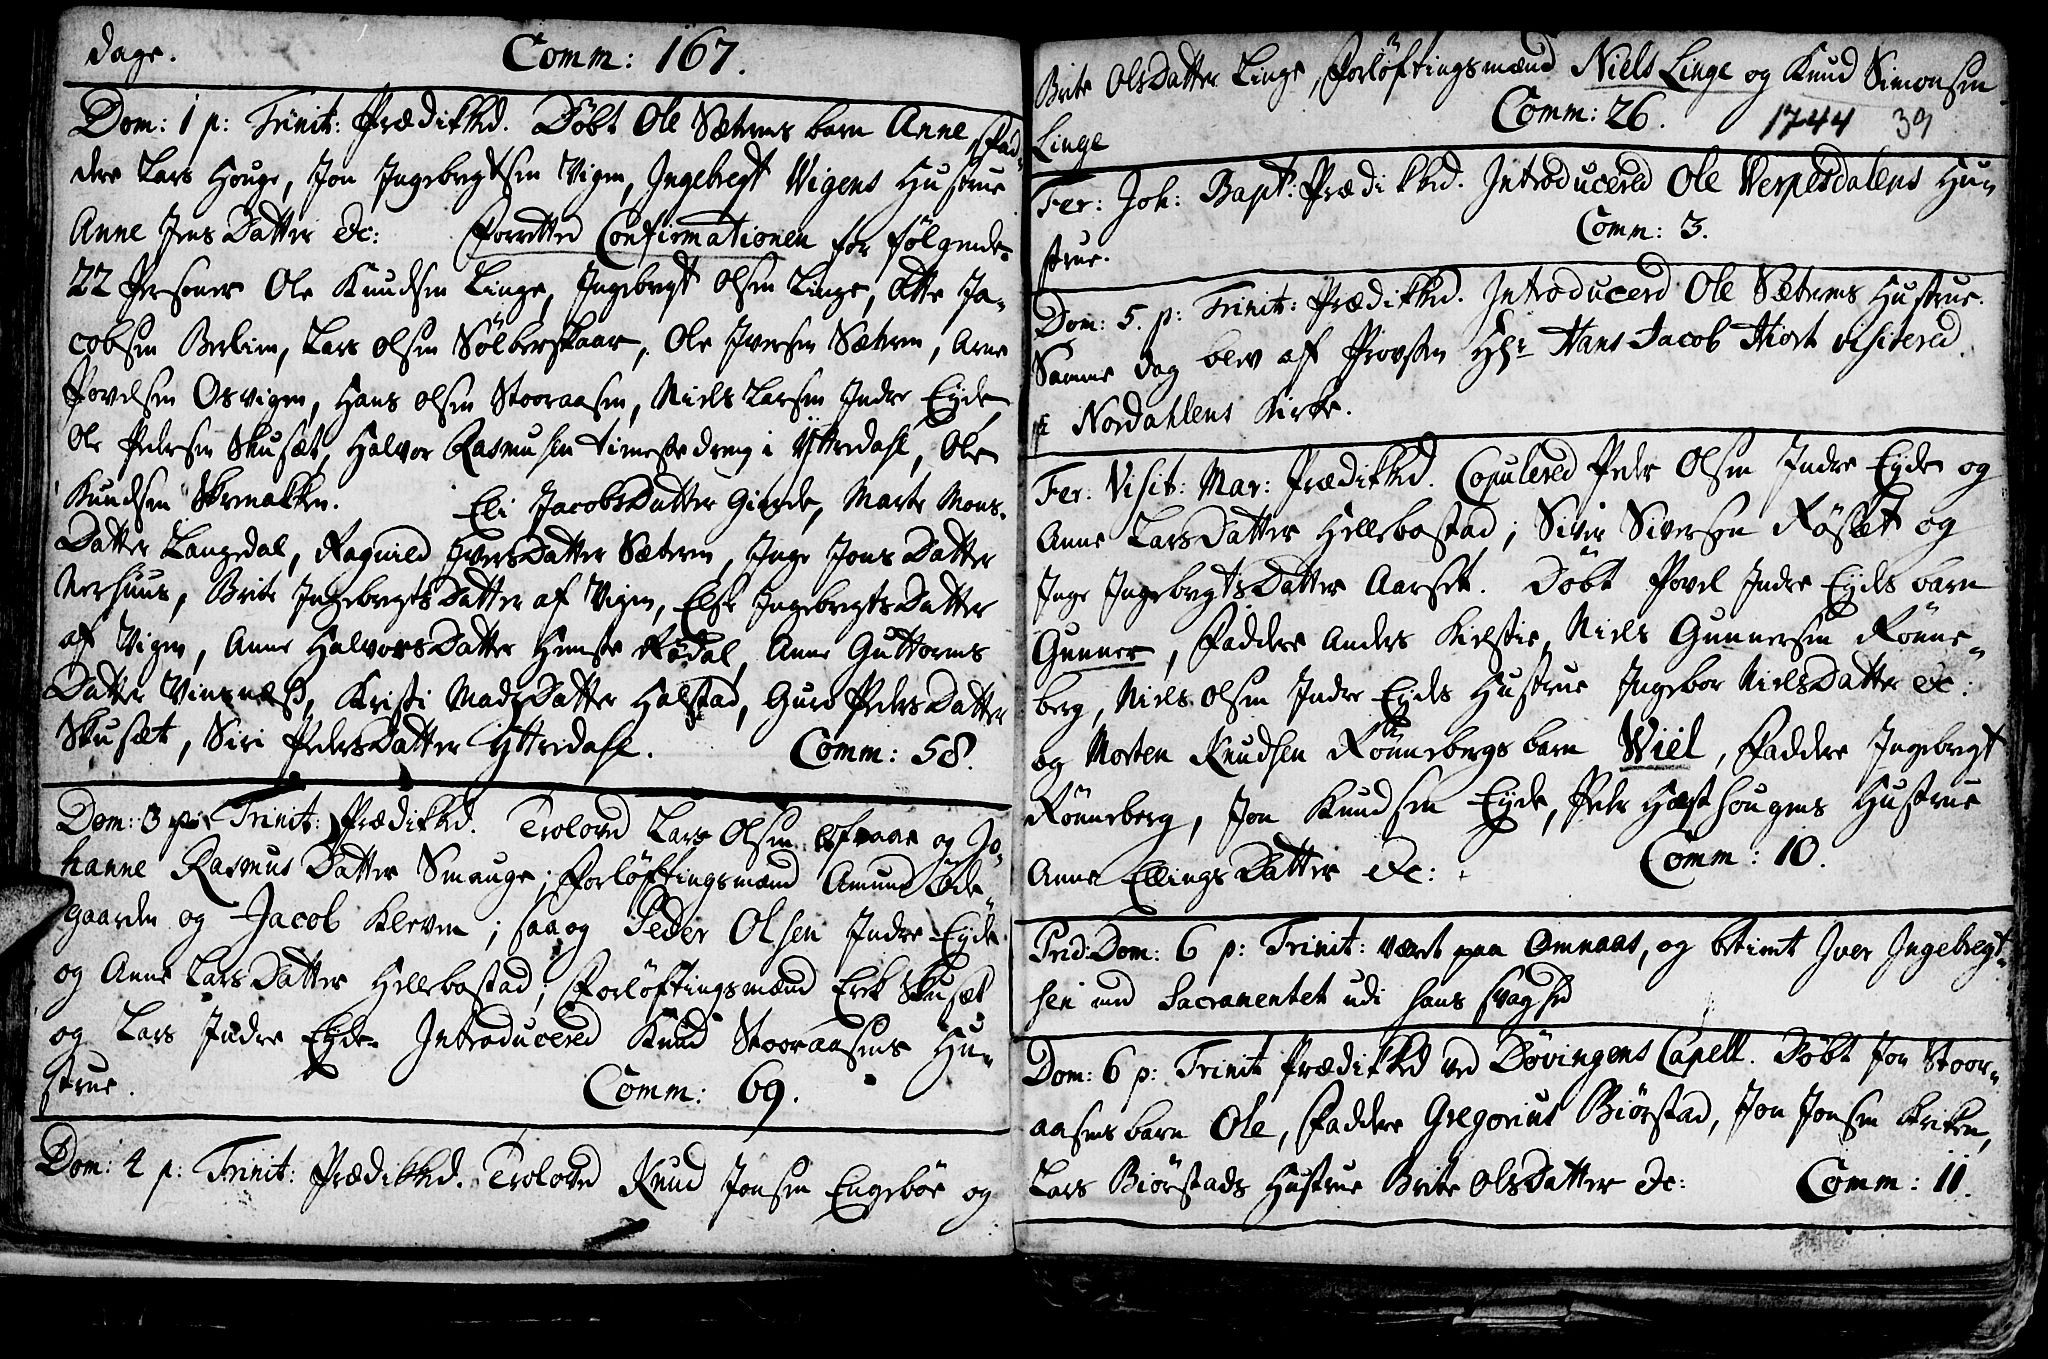 dage. Comm: 167.
Dom: 1 p: Trinit: Prædikked. Döbt Ole Sætrens barn Anne, Fad-
dere Lars Houge, Jon Ingebregtsen Vigen, Ingebregt Wigens Hustrue
Anne Jens Datter &c: Forrettet Confirmationen for følgende
22 Personer Ole Knudsen Linge, Ingebregt Olsen Linge, Otte Ja-
cobsen Berlien, Lars Olsen Sölberskaar, Ole Iversen Sætren, Arne
Povelsen Osvigen, Hans Olsen Stooraasen, Niels Larsen Indre Eyde,
Ole Pedersen Skusæt, Halvor Rasmusen tieneste dreng i Yttredahl, Ole
Knudsen Skrenakken. Eli JacobsDatter Giærde, Marte Mons-
Datter Langdal, Ragnild IversDatter Sætren, Inge Jons Datter
Nerhuus, Brite IngebregtsDatter af Vigen, Else IngebregtsDatter
af Vigen, Anne HalvorsDatter Rödal, Anne Guttorms
Datter Vinnæss, Kristi MadsDatter Halstad, Guro PedersDatter
Skusæt, Siri PedersDatter Yttredahl. Comm: 58.
Dom: 3 p: Trinit: Prædikked. Trolovd Lars Olsen og Jo-
hanne Rasmus Datter Smauge; Forlöftingsmænd Amund Öde-
gaarden og Jacob Kleven; saa og Peder Olsen Indre Eyde
og Anne LarsDatter Hellebostad; Forlöftingsmænd Erik Skusæt
og Lars Indre Eyde. Introducered Knud Stooraasens Hu-
strue. Comm: 69.
Dom: 4 p: Trinit: Prædikked. Trolovd Knud Jonsen Engeböe og
Brite OlsDatter Linge, Forlöftingsmænd Niels Linge og Knud Simonsen
Linge Comm: 26. 1744 39
Fer: Joh: Bapt: Prædikked. Introducered Ole Verpesdalens Hu-
strue. Comm: 3.
Dom: 5. p: Trinit: Prædikked. Introducerd Ole Sætrens Hustrue.
Samme dag blev af Provsten Hr Hans Jacob Hiort visitered
i Nordahlens Kirke.
Fer: Visit: Mar: Prædikked. Copulered Peder Olsen Indre Eyde og
Anne LarsDatter Hellebostad; Siver Siversen Röset og
Inge IngebregtsDatter Aarset. Döbt Povel Indre Eyds barn
Gunner, Faddere Anders Kielstie, Niels Gunnersen Rönne-
berg, Niels Olsen Indre Eyds Hustrue Ingebor NielsDatter &c:
og Morten Knudsen Rönnebergs barn Wiel, Faddere Ingebregt
Rönneberg, Jon Knudsen Eyde, Peder Hæsthougens Hustrue
Anne Ellings Datter &c: Comm: 10.
Prid: Dom: 6 p: Trinit: været paa Omnaas, og betient Iver Ingebregt-
sen med Sacramentet udi hans svaghed
Dom: 6 p: Trinit Prædikked ved Dövingens Capell. Döbt Jon Stoor-
aasens barn Ole, Faddere Gregorius Biörstad, Jon Jonsen Kriken,
Lars Biörstads Hustrue Brite OlsDatter &c: Comm: 11.